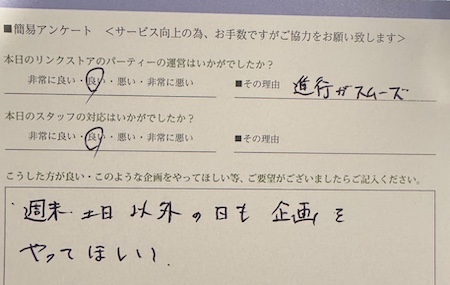 ■簡易アンケート <サービス向上の為、お手数ですがご協力をお願い致します>
本日のリンクストアのパーティーの運営はいかがでしたか?
非常に良い・良い・悪い・非常に悪い ■その理由 進行がスムーズ
本日のスタッフの対応はいかがでしたか?
非常に良い・良い・悪い・非常に悪い ■その理由
こうした方が良い・このような企画をやってほしい等、ご要望がございましたらご記入ください。
週末 土日 以外の日も 企画を
やってほしい.